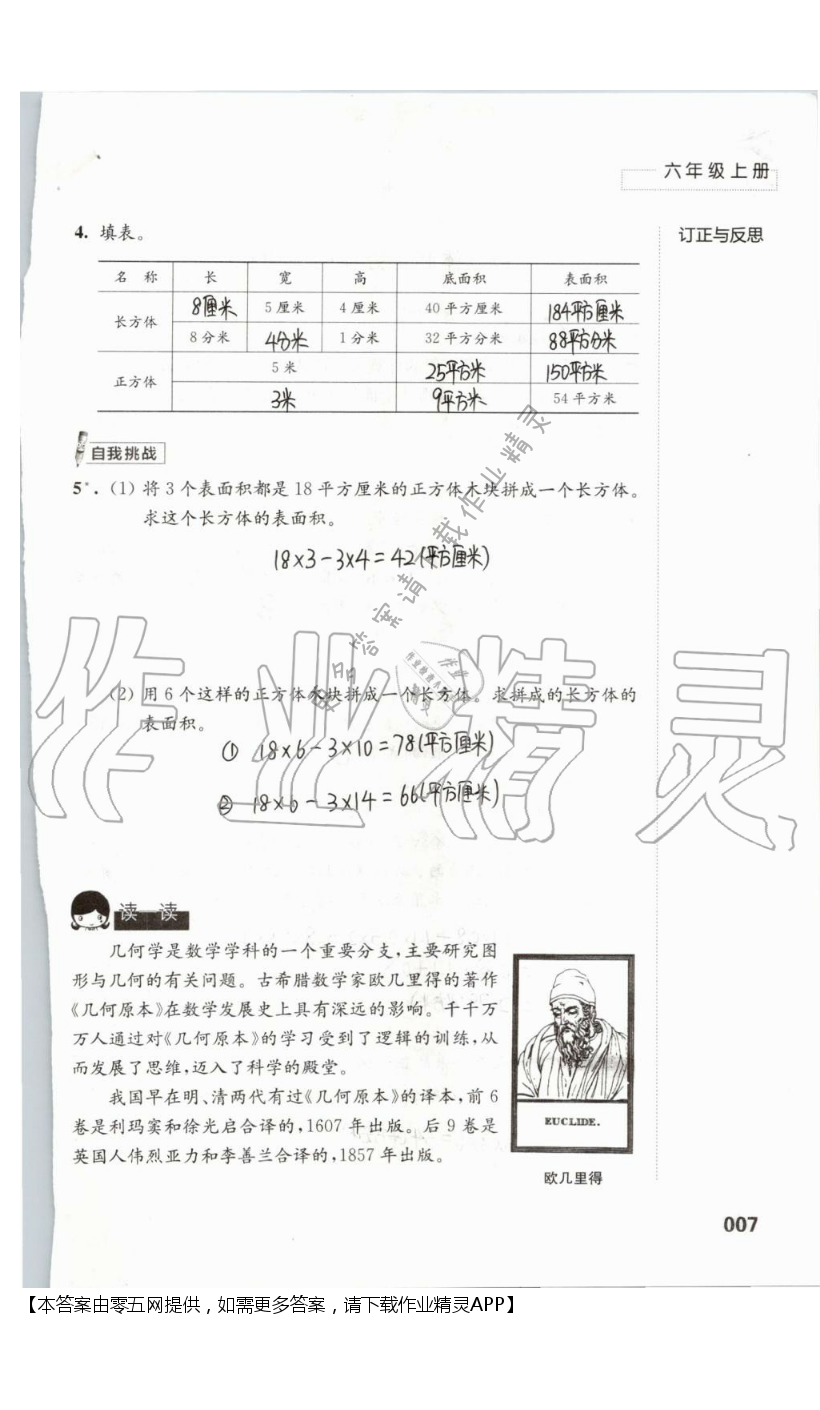 六年级上册
4. 填表。
订正与反思
名 称 长 宽 高 底面积 表面积
长方体 8厘米 5厘米 4厘米 40平方厘米 184平方厘米
8分米 4分米 1分米 32平方分米 88平方分米
正方体 5米 25平方米 150平方米
3米 9平方米 54平方米
自我挑战
5*. (1) 将3个表面积都是18平方厘米的正方体木块拼成一个长方体。
求这个长方体的表面积。
18×3-3×4=42(平方厘米)
(2) 用6个这样的正方体木块拼成一个长方体。求拼成的长方体的
表面积。
① 18×6-3×10=78(平方厘米)
② 18×6-3×14=66(平方厘米)
作业精灵
更多答案请下载作业精灵
读一读
几何学是数学学科的一个重要分支,主要研究图
形与几何的有关问题。古希腊数学家欧几里得的著作
《几何原本》在数学发展史上具有深远的影响。千千万
万人通过对《几何原本》的学习受到了逻辑的训练,从
而发展了思维,迈入了科学的殿堂。
我国早在明、清两代有过《几何原本》的译本,前6
卷是利玛窦和徐光启合译的,1607年出版。后9卷是
英国人伟烈亚力和李善兰合译的,1857年出版。
EUCLIDE.
欧几里得
007
【本答案由零五网提供，如需更多答案，请下载作业精灵APP】